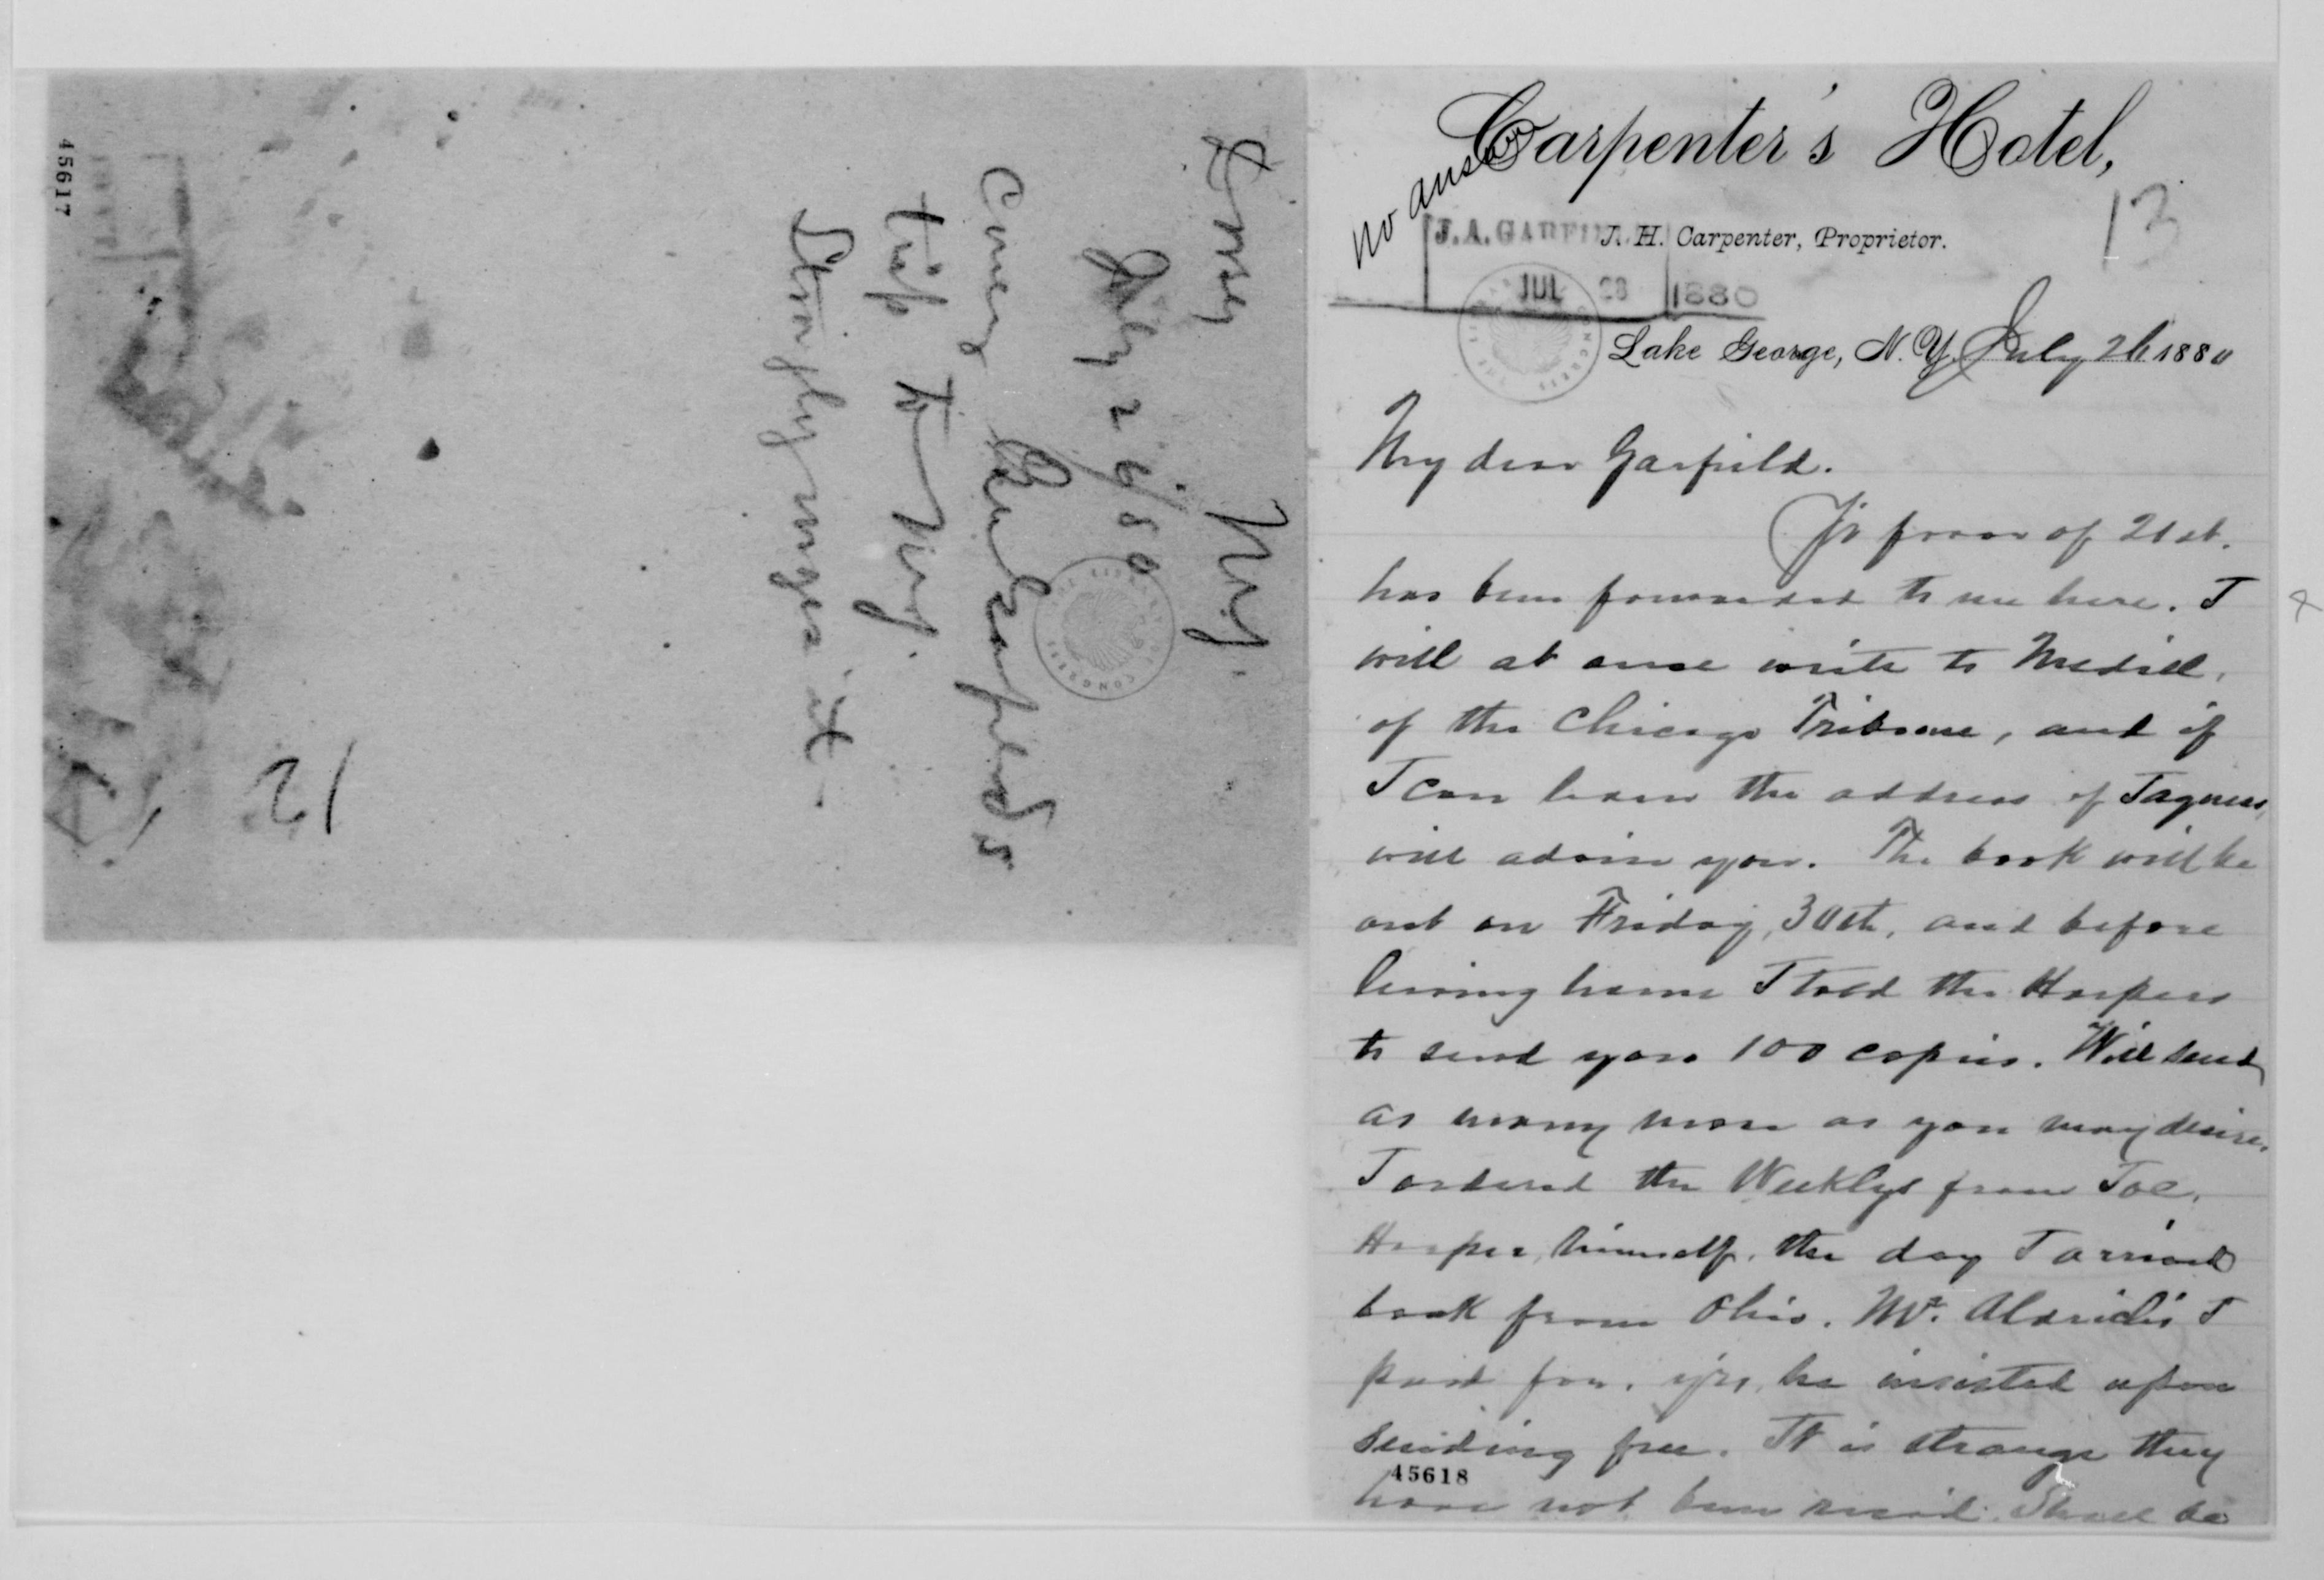 45617
Dorsey N.Y.
July 26/80
Concg Gen Garfields
trip to N.Y.
Strongly urges it
12
Carpenter's Hotel,
no answer
13
J. A. GARFIELD
J. H. Carpenter, Proprietor.
JUL 28 1880
Lake George, N. Y. July 26 1880
My dear Garfield.
Yr favor of 21st.
has been forwarded to me here. I
will at once write to Medill,
of the Chicago Tribune, and if
I can learn the address of
will advise you. The book will be
out on Friday, 30th, and before
leaving home I told the Harpers
to send you 100 copies. Will send
as many more as you may desire.
I ordered the Weeklys from Joe.
Harper, himself, the day I arrived
back from Ohio. Mr. Aldrich's I
paid for. yrs, he insisted upon
sending free. It is strange they
45618
have not been recd. Shall be